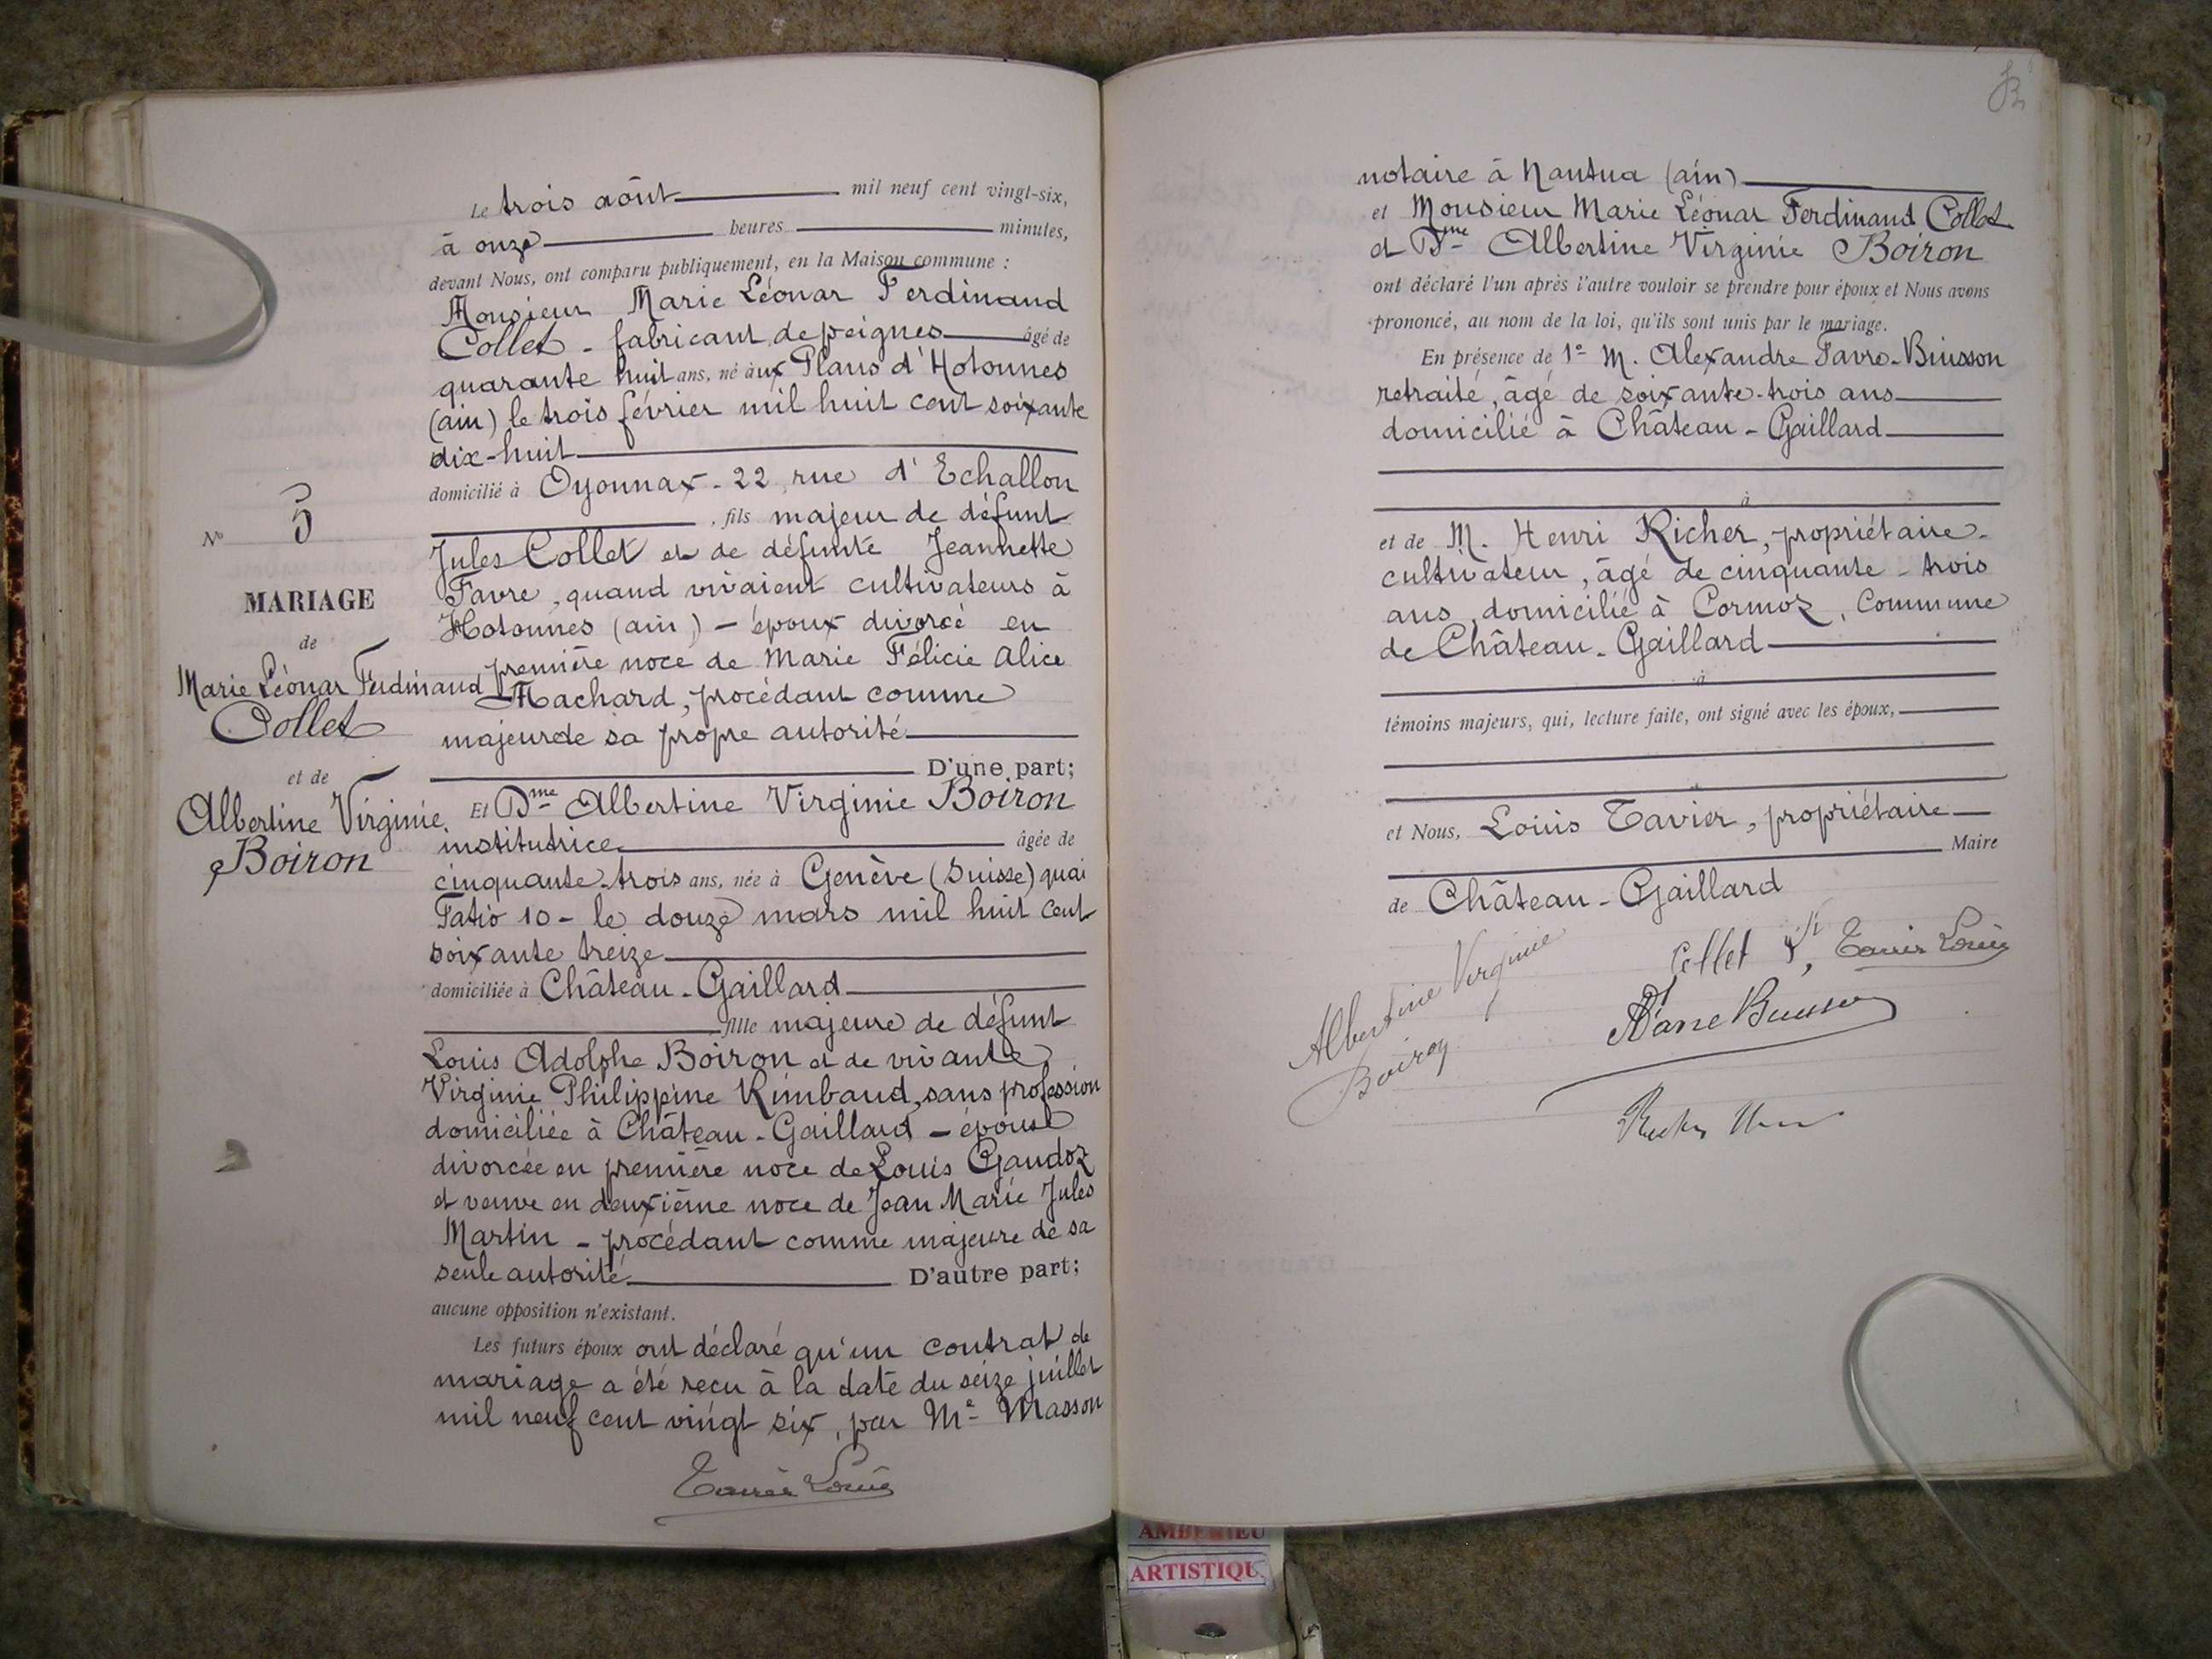 Le trois août mil neuf cent vingt-six,
à onze heures minutes,
devant Nous, ont comparu publiquement, en la Maison commune :
Monsieur Marie Léonar Ferdinand
Collet - fabricant de peignes âgé de
quarante huit ans, né aux Plans d'Hotonnes
(ain) le trois février mil huit cent soixante
dix-huit
domicilié à Oyonnax - 22, rue d'Echallon
, fils majeur de défunt
Jules Collet et de défunte Jeannette
Favre, quand vivaient cultivateurs à
Hotonnes (ain) - époux divorcé en
première noce de Marie Félicie Alice
Machard, procédant comme
majeur de sa propre autorité
D'une part;
Et Dme Albertine Virginie Boiron
institutrice âgée de
cinquante-trois ans, née à Genève (Suisse) quai
Fatio 10 - le douze mars mil huit cent
soixante treize
domiciliée à Château-Gaillard
fille majeure de défunt
Louis Adolphe Boiron et de vivante
Virginie Philippine Rimbaud, sans profession
domiciliée à Château-Gaillard - épouse
divorcée en première noce de Louis Gaudoz
et veuve en deuxième noce de Jean Marie Jules
Martin - procédant comme majeure de sa
seule autorité D'autre part;
aucune opposition n'existant.
Les futurs époux ont déclaré qu'un contrat de
mariage a été reçu à la date du seize juillet
mil neuf cent vingt six, par Me Masson
Tavier Louis
No 5
MARIAGE
de
Marie Léonar Ferdinand
Collet
et de
Albertine Virginie
Boiron
notaire à Nantua (ain)
et Monsieur Marie Léonar Ferdinand Collet
et Dme Albertine Virginie Boiron
ont déclaré l'un après l'autre vouloir se prendre pour époux et Nous avons
prononcé, au nom de la loi, qu'ils sont unis par le mariage.
En présence de 1° M. Alexandre Favre-Buisson
retraité, âgé de soixante-trois ans
domicilié à Château-Gaillard
à
et de M. Henri Richer, propriétaire-
cultivateur, âgé de cinquante-trois
ans, domicilié à Cormoz, Commune
de Château-Gaillard
à
témoins majeurs, qui, lecture faite, ont signé avec les époux,
et Nous, Louis Tavier, propriétaire
Maire
de Château-Gaillard
Albertine Virginie
Boiron
Collet
Tavier Louis
AMBERIEU
ARTISTIQU